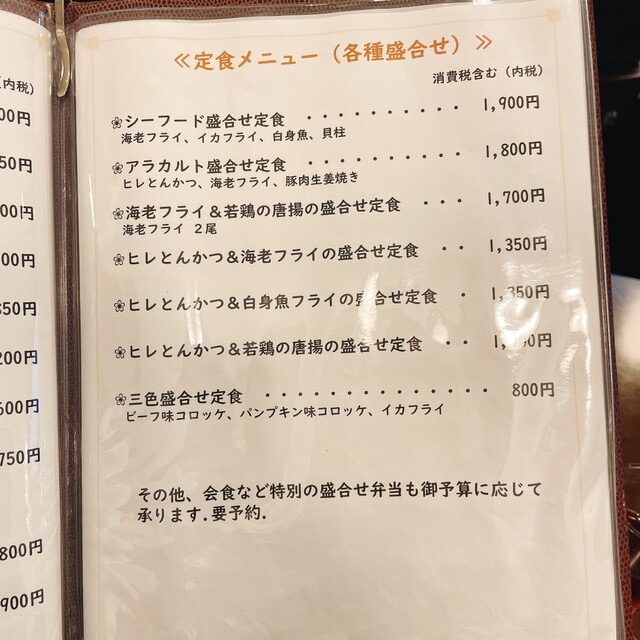 ≪定食メニュー（各種盛合せ）≫
消費税含む（内税）
❀シーフード盛合せ定食 ・・・・・・・・・・ 1,900円
海老フライ、イカフライ、白身魚、貝柱
❀アラカルト盛合せ定食 ・・・・・・・・・・ 1,800円
ヒレとんかつ、海老フライ、豚肉生姜焼き
❀海老フライ＆若鶏の唐揚の盛合せ定食 ・・・ 1,700円
海老フライ ２尾
❀ヒレとんかつ＆海老フライの盛合せ定食 ・・ 1,350円
❀ヒレとんかつ＆白身魚フライの盛合せ定食 ・ 1,350円
❀ヒレとんかつ＆若鶏の唐揚の盛合せ定食 ・・
❀三色盛合せ定食 ・・・・・・・・・・・・・・ 800円
ビーフ味コロッケ、パンプキン味コロッケ、イカフライ
その他、会食など特別の盛合せ弁当も御予算に応じて
承ります.要予約.